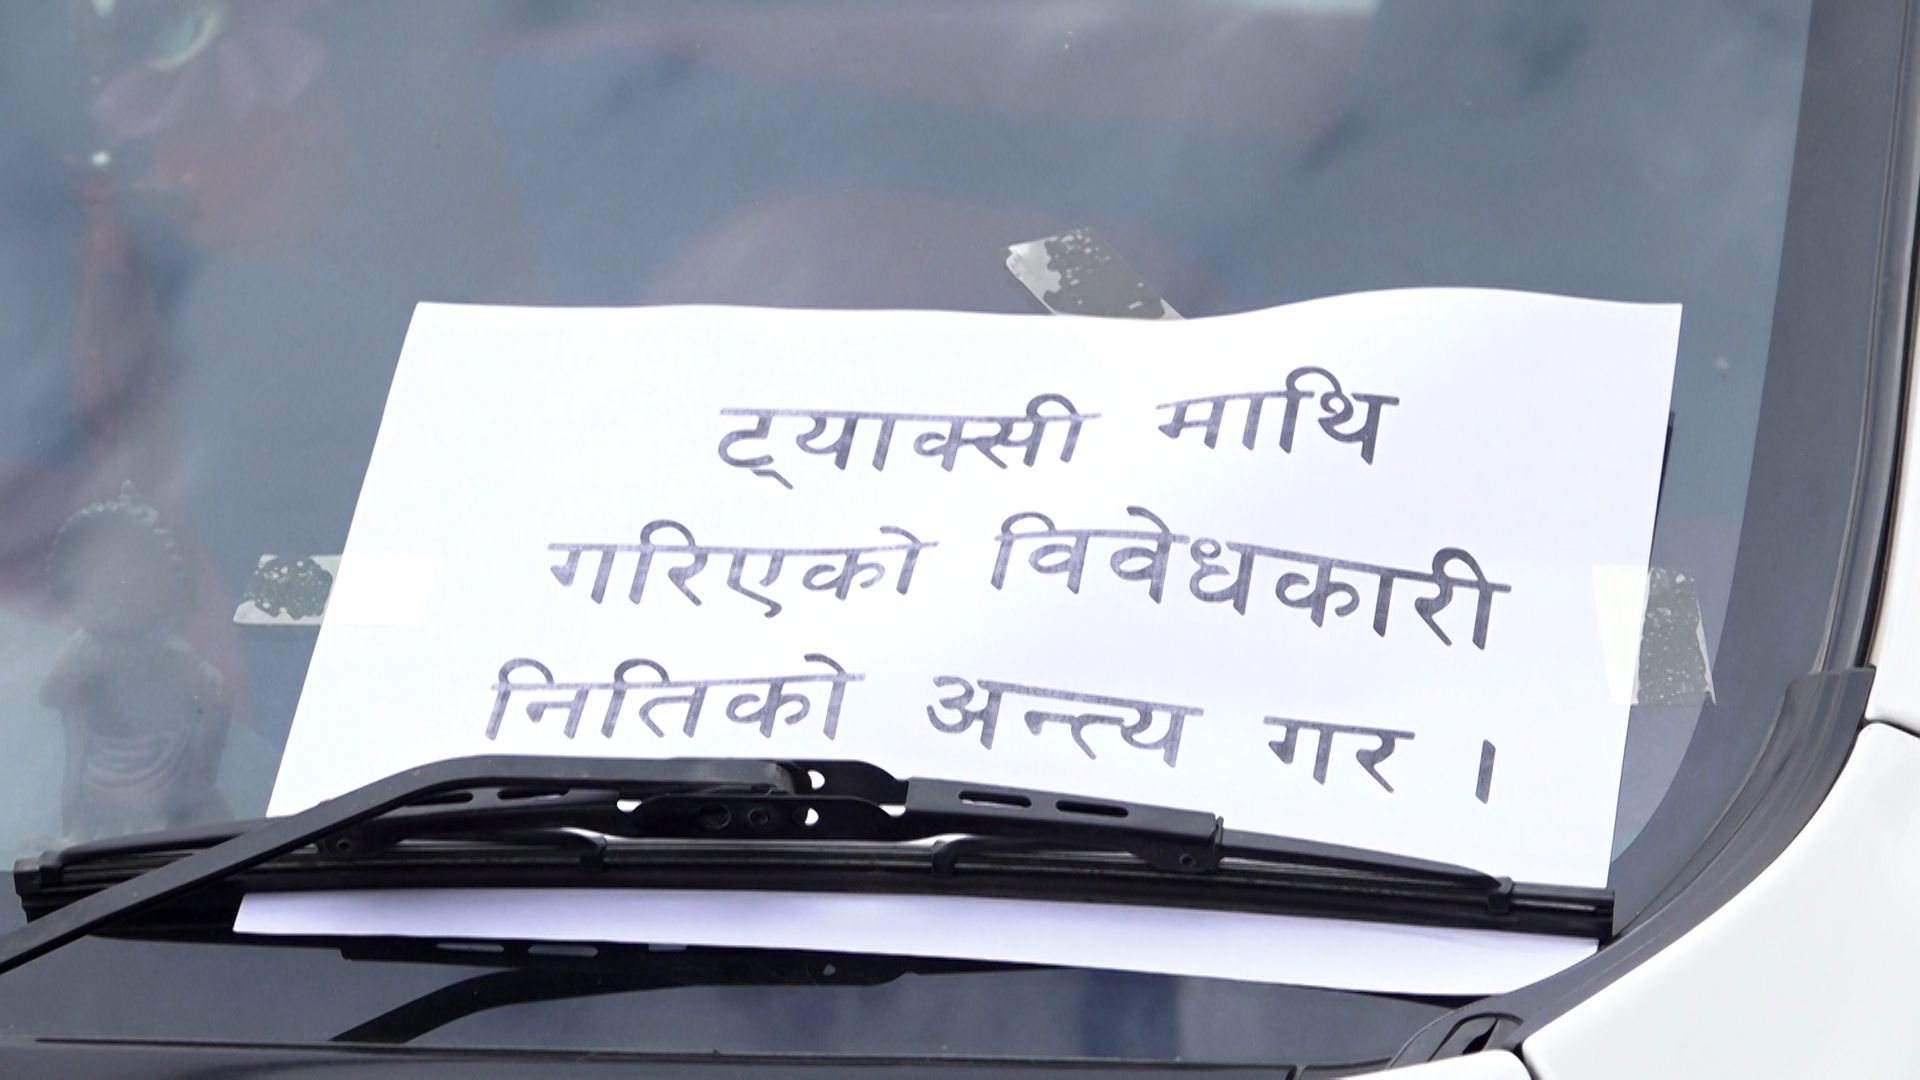 ट्याक्सी माथि
गरिएको विवेधकारी
नितिको अन्त्य गर ।